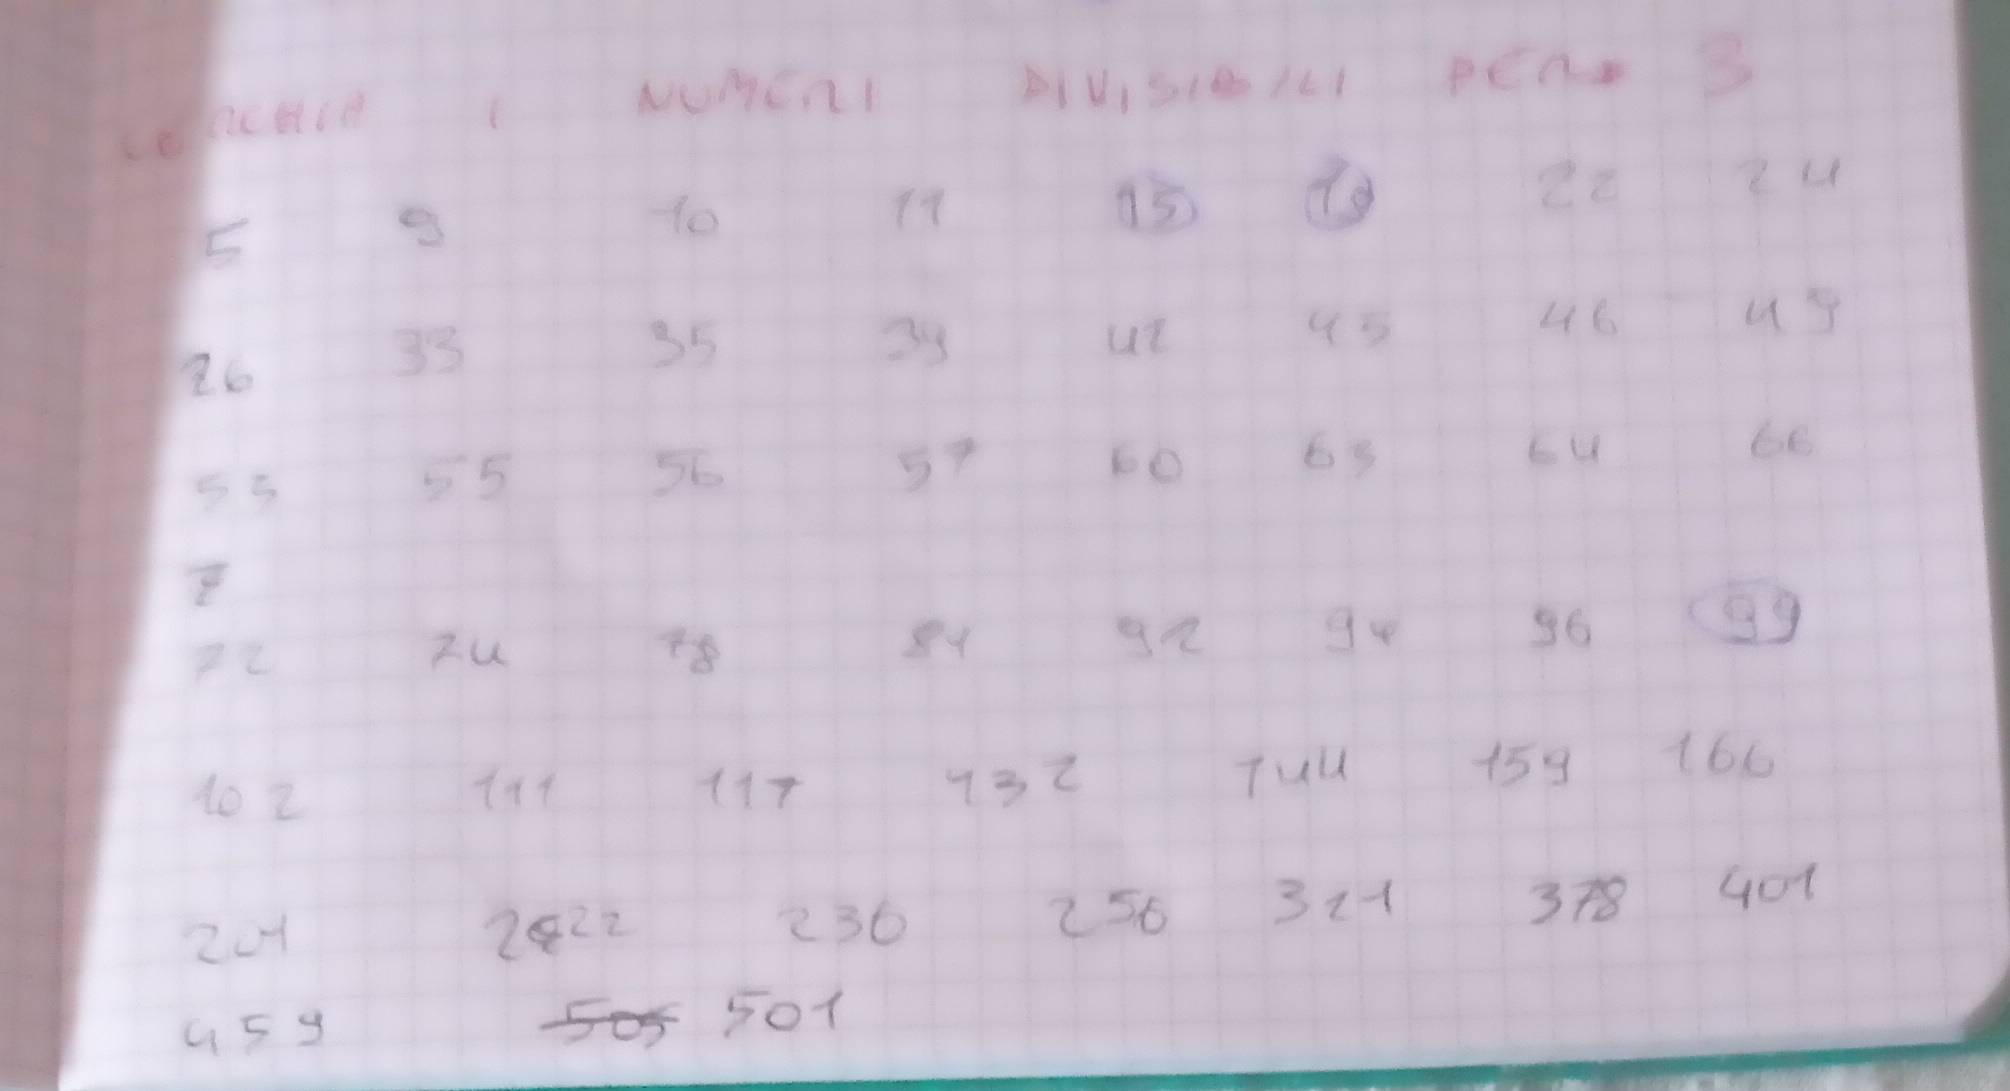 CERCHIA I NUMERI DIVISIBILI PER 3
5 9 10 11 15 19 22 24
26 33 35 39 42 45 46 49
53 55 56 57 60 63 64 66
7
72 74 78 84 92 94 96 99
102 111 117 132 144 159 166
201 222 236 256 321 378 401
459 505 501